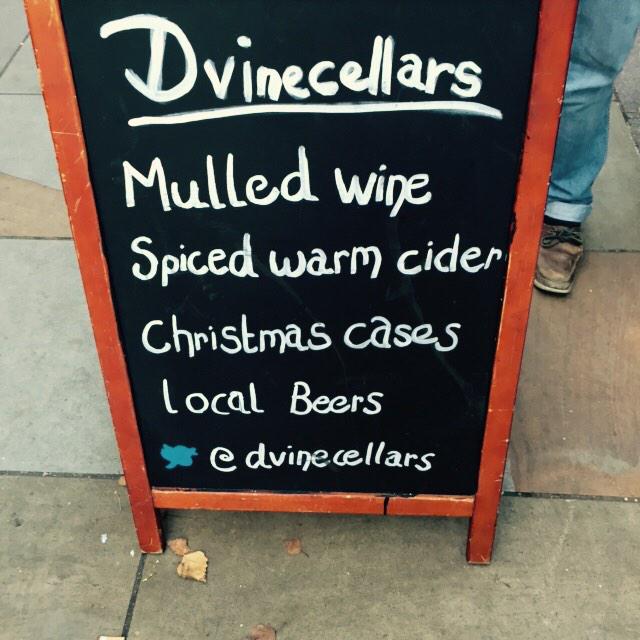 Dvinecellars
Mulled wine
Spiced warm cider
Christmas cases
local Beers
@dvinecellars